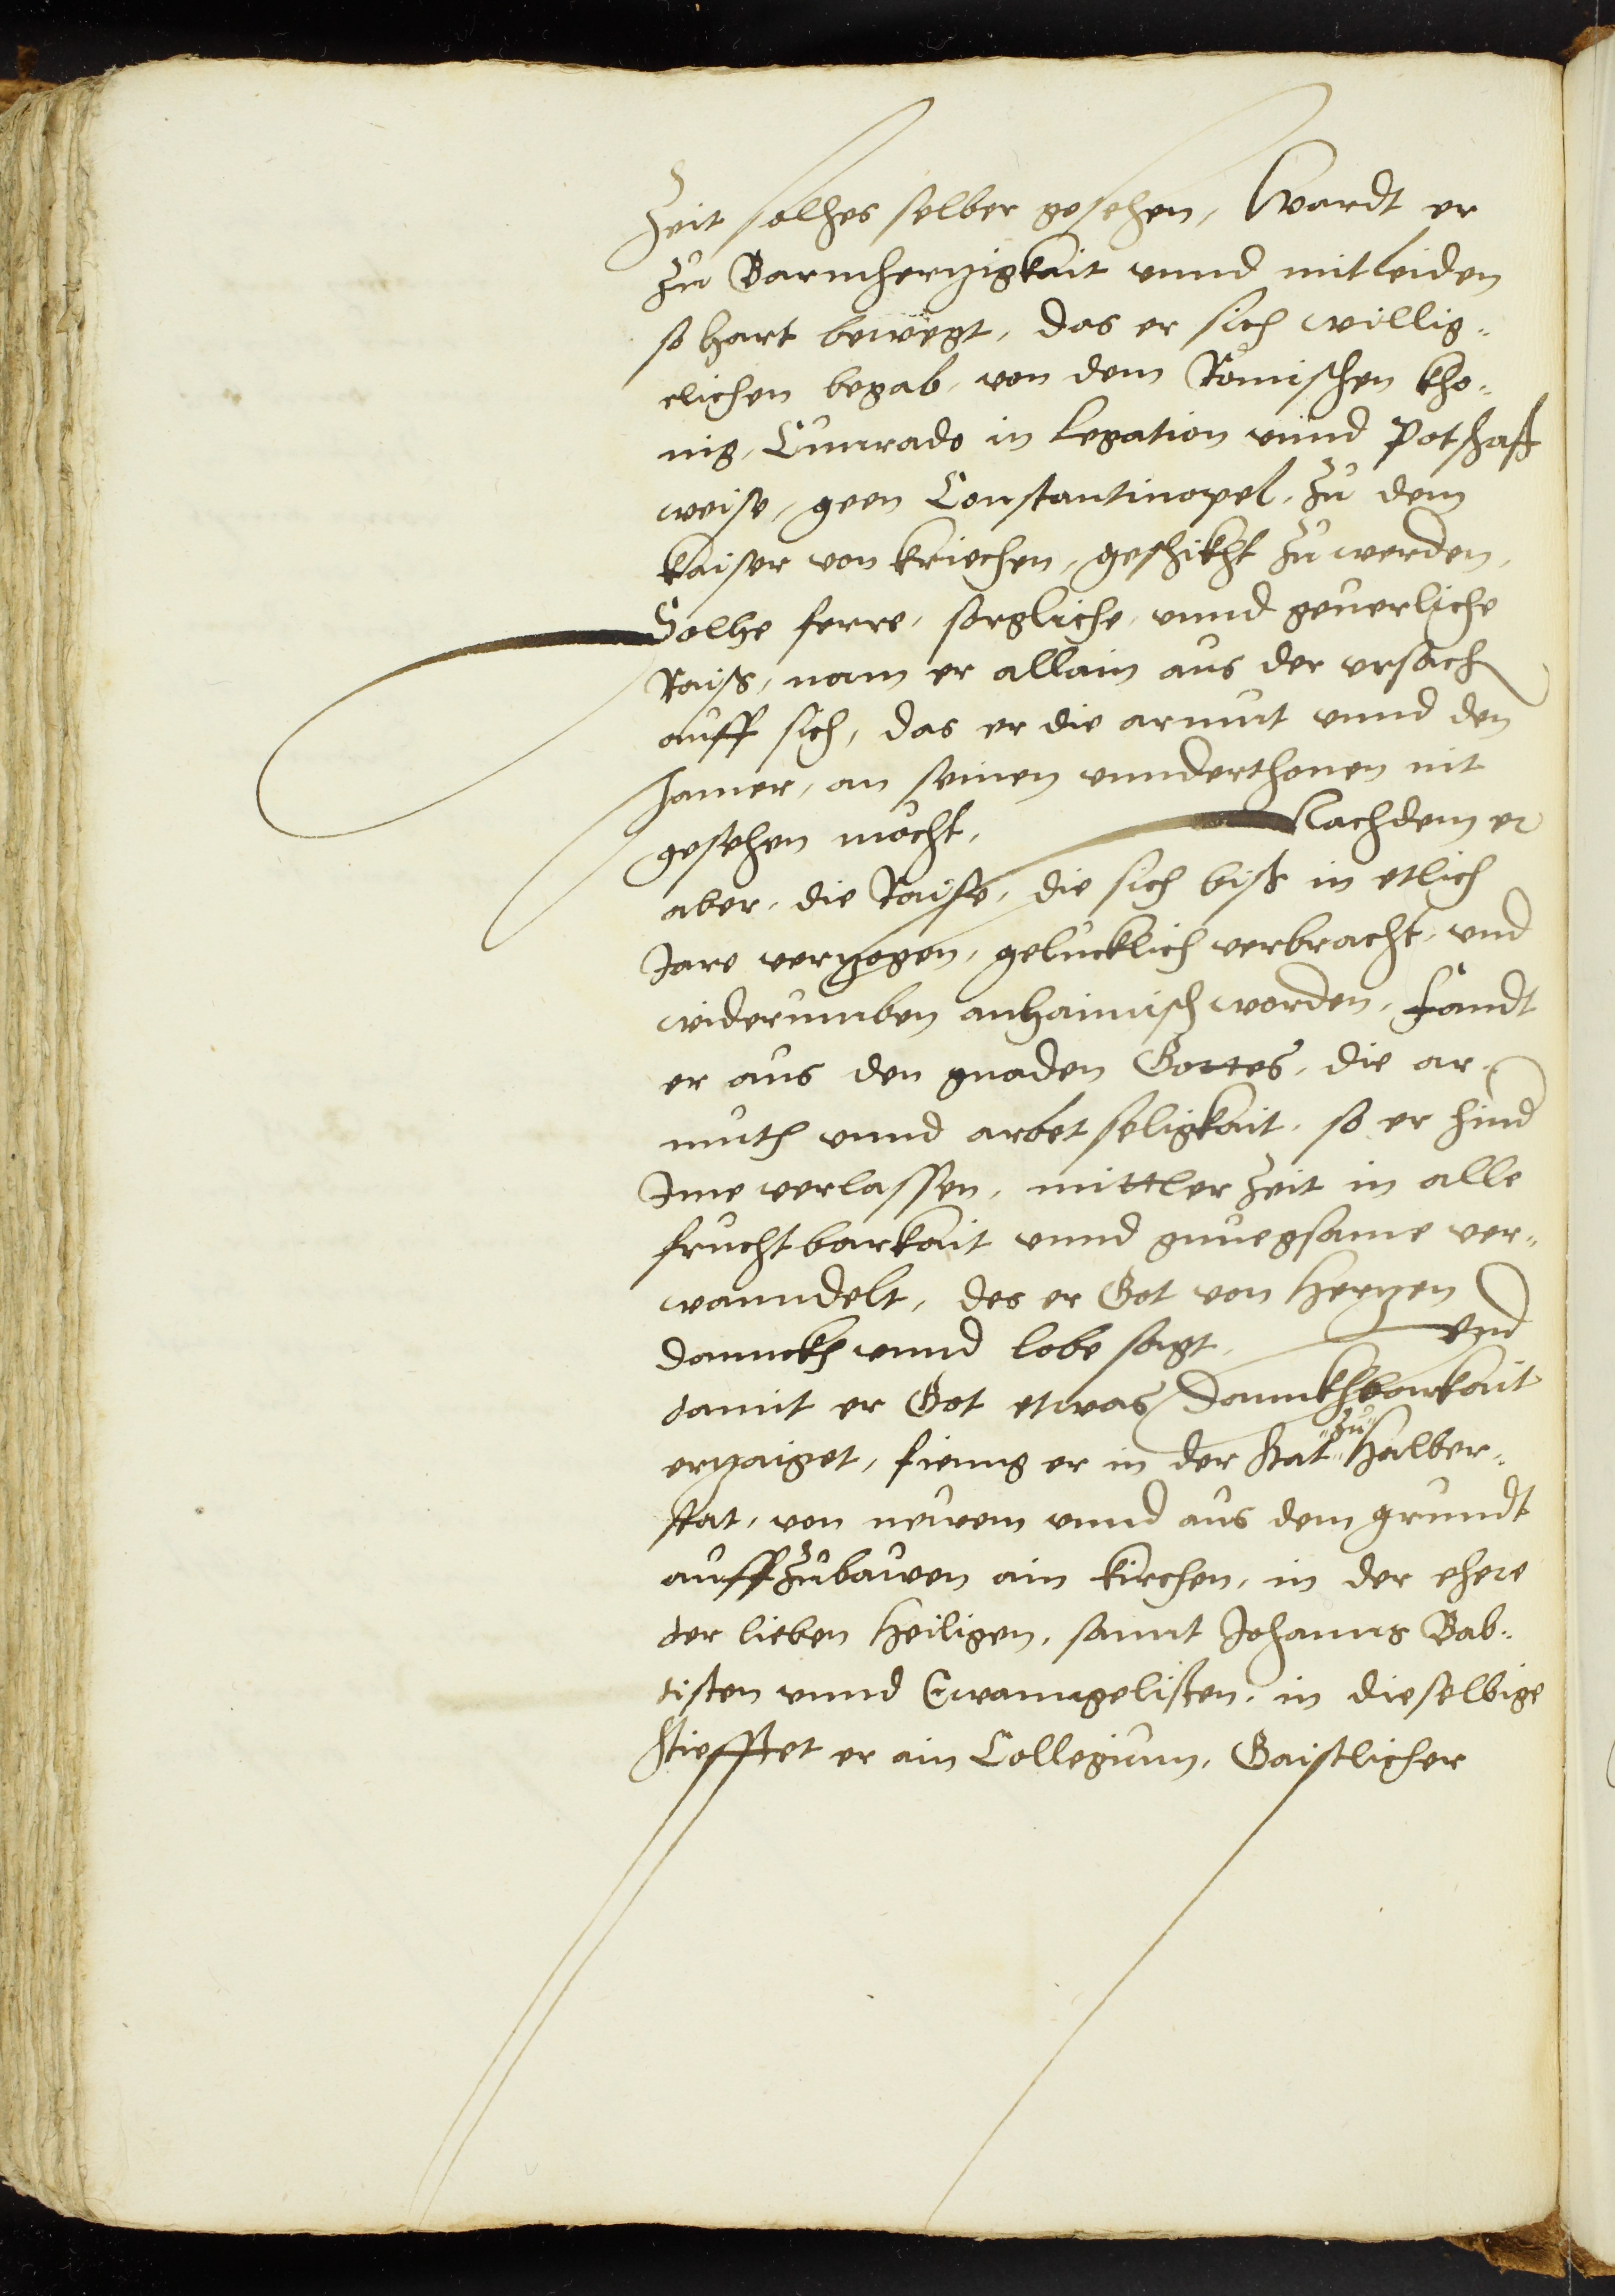 Zeit solhes selber gesehen, Wardt er
zu Barmhertzigkait vnnd mitleiden
so hart bewëgt, das er sich willig-
clichen begab, von dem Römischen kho-
nig, Cunrado in Legation vnnd Potschafft
weise, geen Constantinopel, zu dem
kaiser von kriechen, geschikht zu werden,
Solhe ferre, sorgliche, vnnd geuerliche
Raiß, nam er allain aus der vrsach
auff sich, das er die armut vnnd den
Jamer, an seinen vnnderthonen nit
gesehen möcht, Nachdem er
aber, die Raise, die sich biß in etlich
Jare vertzogen, gelucklich verbracht, vnd
widerumben anhaimisch worden, fandt
er aus den gnaden Gottes, die ar-
muth vnnd arbetseligkait, so er hind
Jme verlassen, mittler Zeit in alle
fruchtbarkait vnnd gnuegsame ver-
wanndelt, des er Got von Hertzen
dannckh vnnd lobe sagt, Vnd
damit er Got etwas Dannkhbarkait
ertzaiget, fienng er in der Stat zu Halber-
stat, von newem vnnd aus dem grundt
auffzubawen ain kirchen, in der ehere
der lieben Heiligen, sannt Johanns Bab-
tisten vnnd Ewanngelisten, in dieselbige
Stifftet er ain Collegium, Gaistlicher